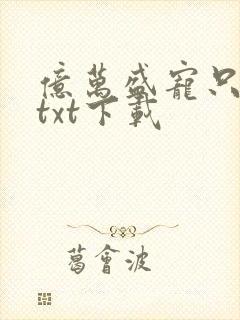 億萬盛寵只
txt下載
葛會波